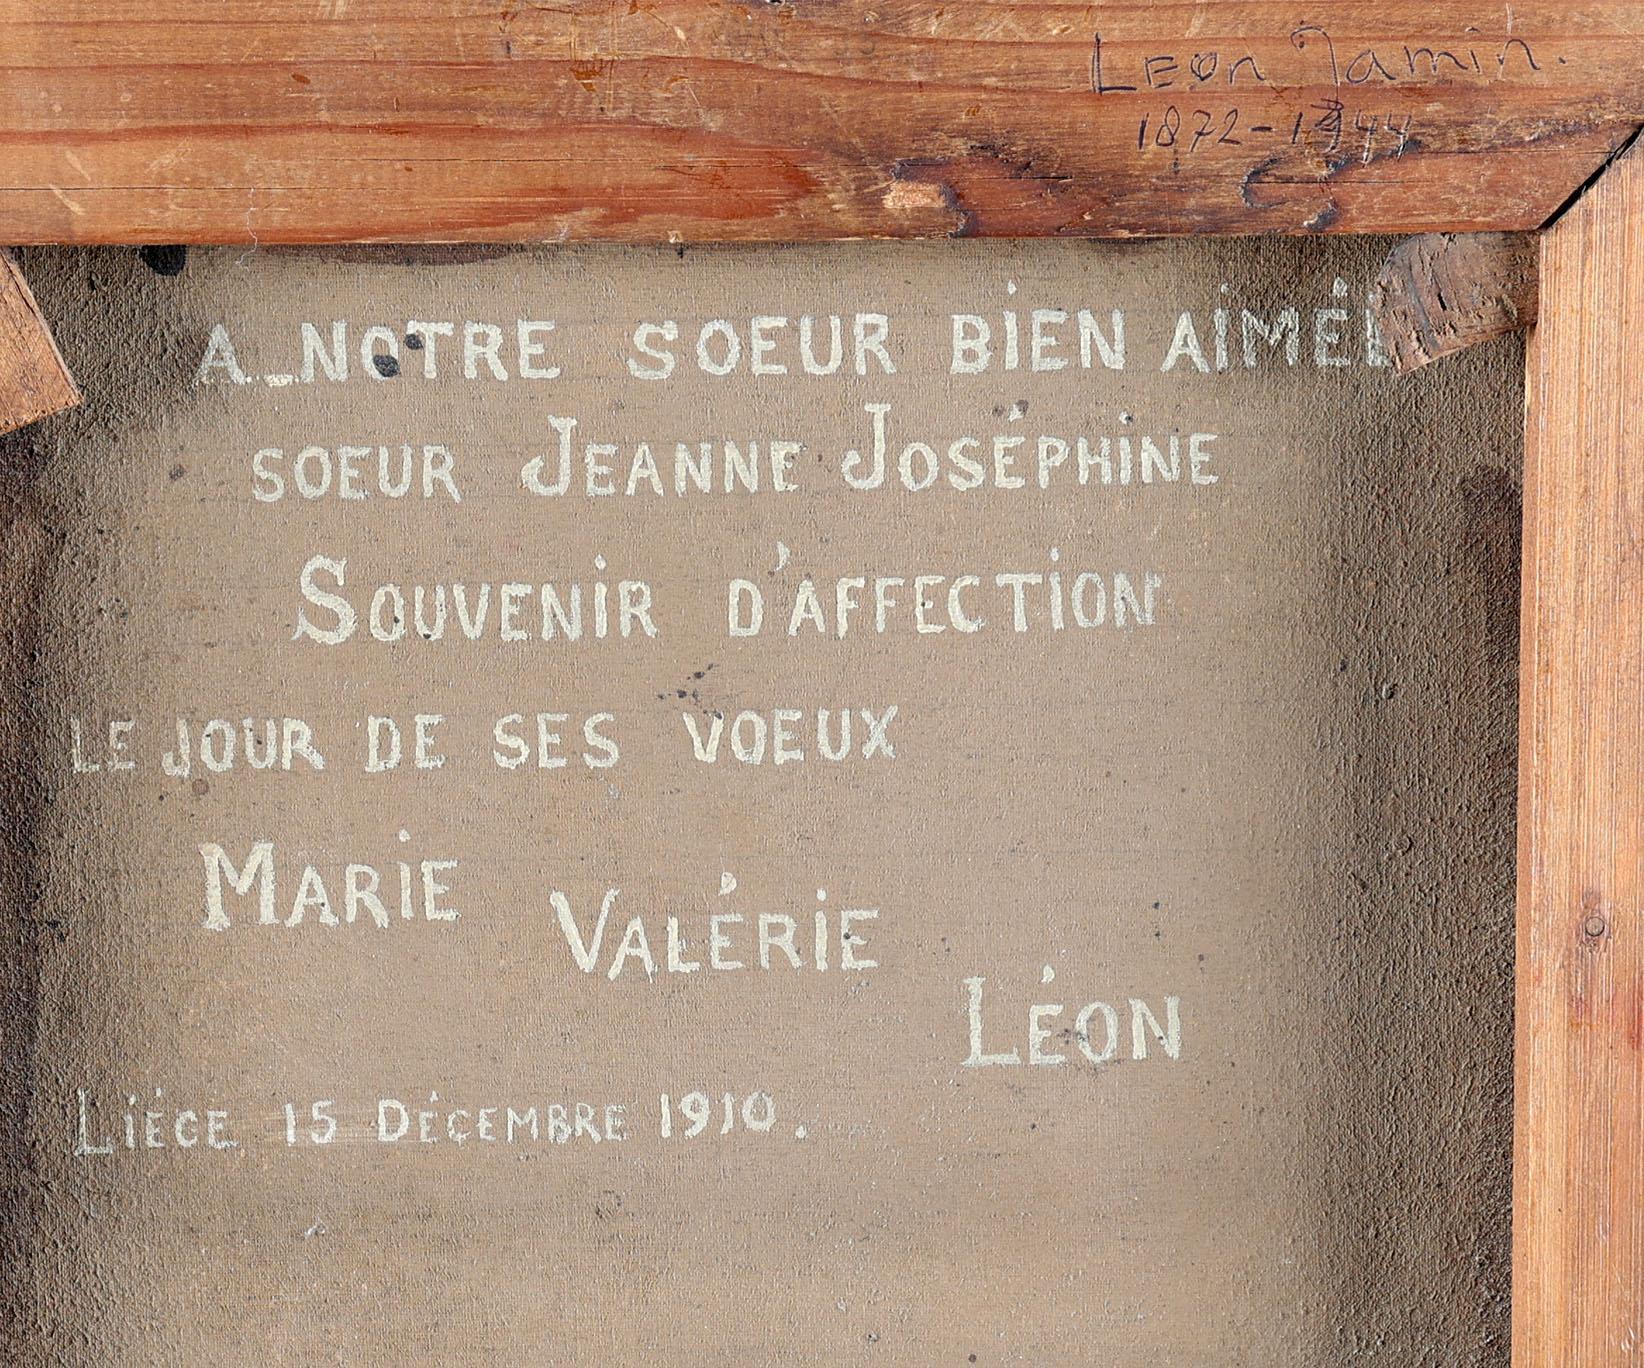 Leon Jamin.
1872-1944
A NOTRE SOEUR BIEN AIMÉE
SOEUR JEANNE JOSÉPHINE
SOUVENIR D'AFFECTION
LE JOUR DE SES VOEUX
MARIE
VALÉRIE
LÉON
LIÉGE 15 DÉCEMBRE 1910.